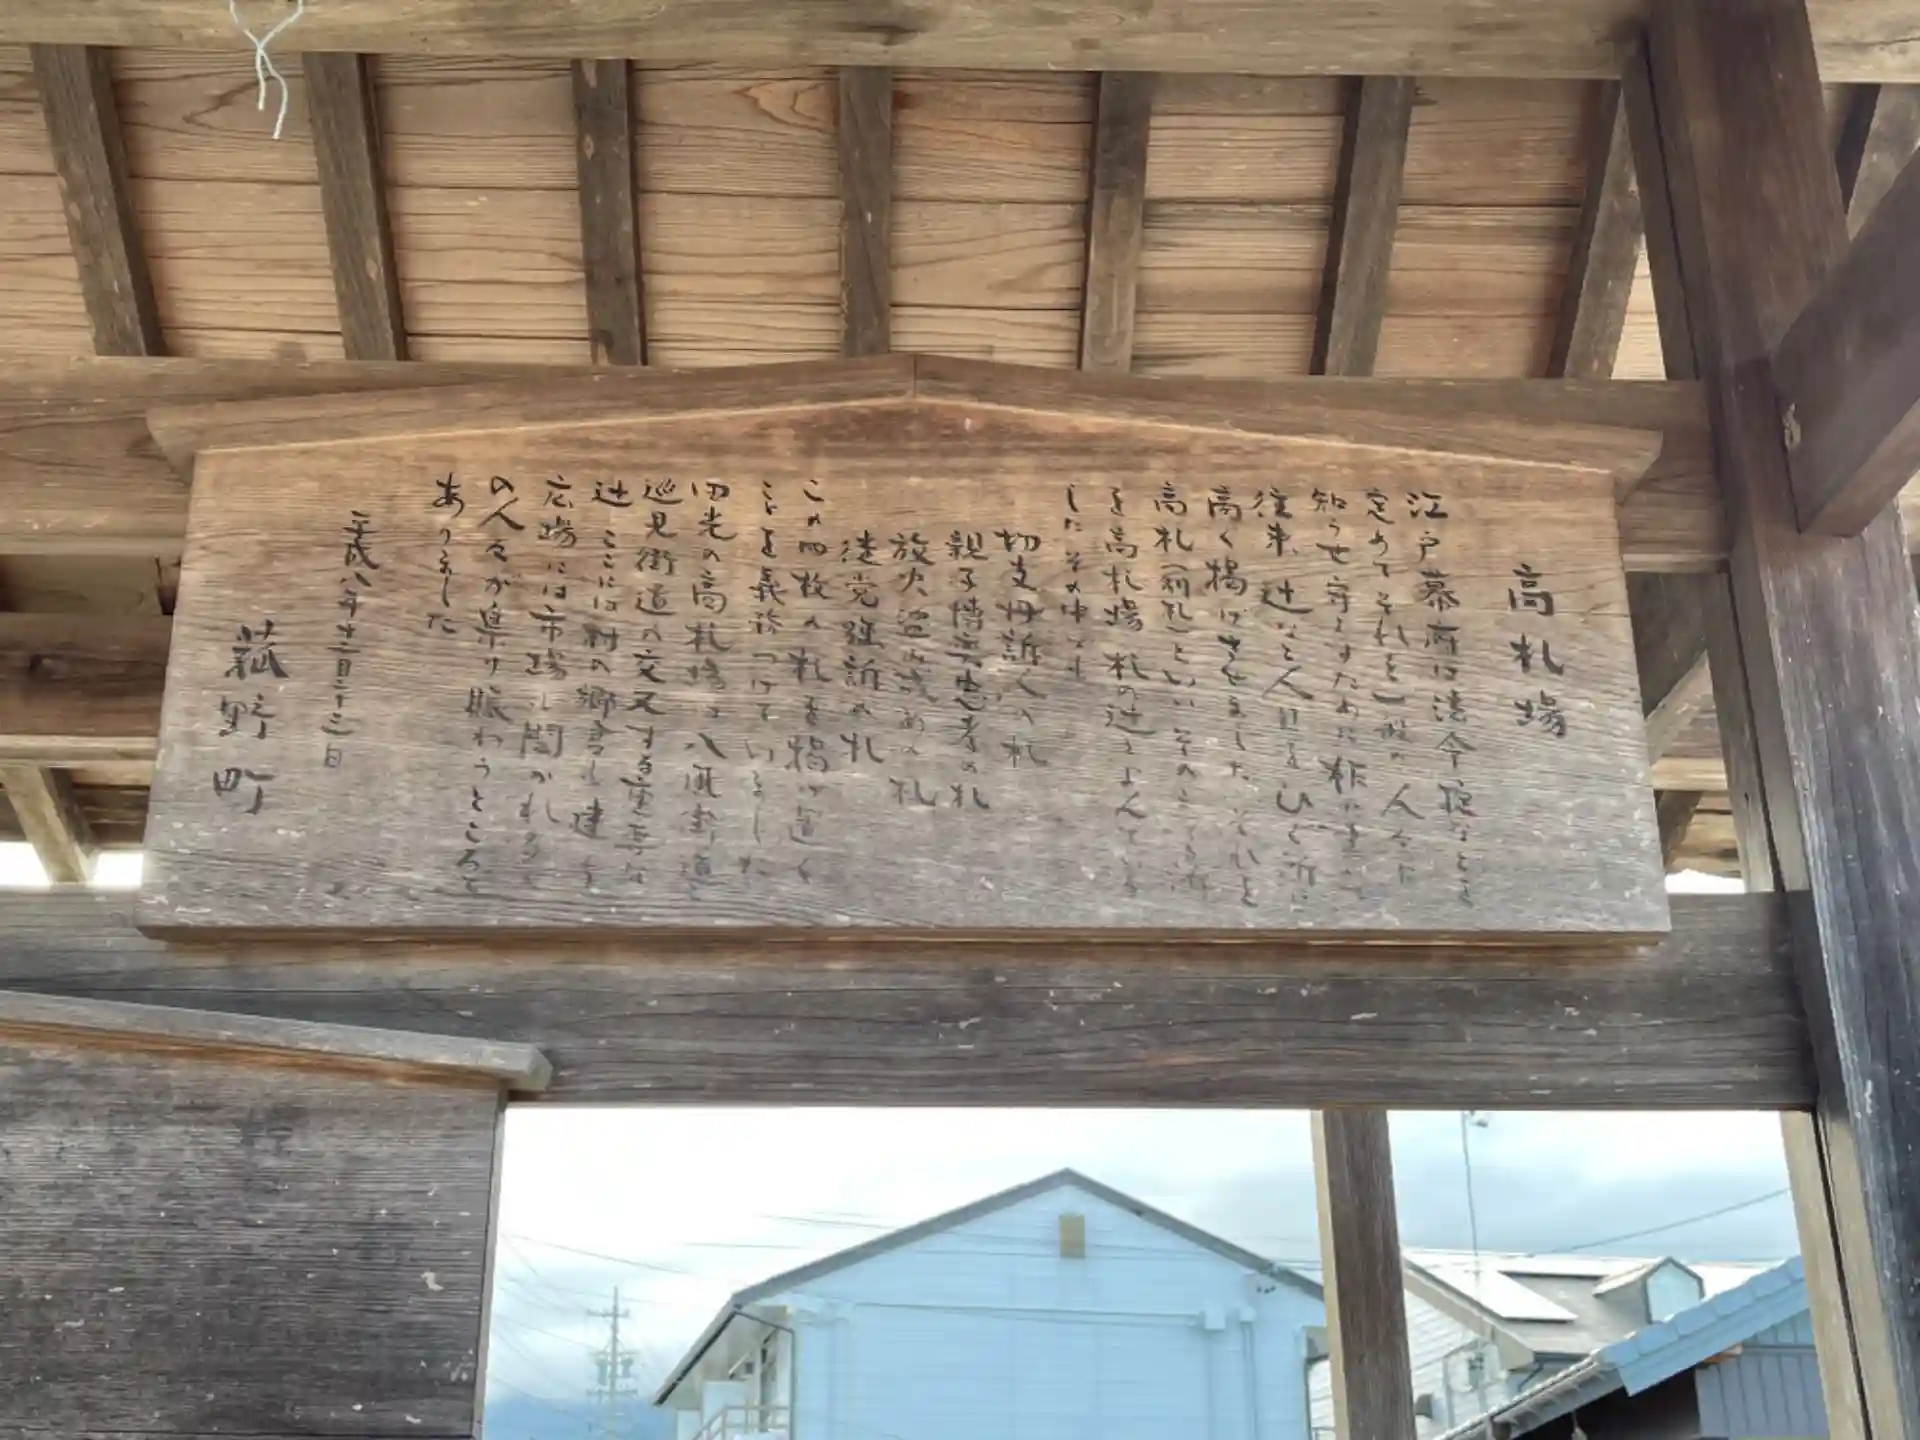 高札場
江戸幕府は法令 掟などを
定めてそれを一般の人々に
知らせ守らすために板に書いて
往来、辻など人目をひく所に
高く掲げさせました それを
高札(制札)といい その立てる所
を高札場 札の辻とよんでいま
した その中でも
切支丹訴人の札
親子情実忠孝の札
放火盗み戒めの札
徒党強訴の札
この四枚の札を掲げ置く
ことを義務づけていました
田光の高札場は八風街道と
巡見街道の交叉する重要な
辻 ここには村の郷倉も建ち
広場には市場も開かれ
の人々が集り賑わうところで
ありました
平成八年十二月二十三日
菰野町